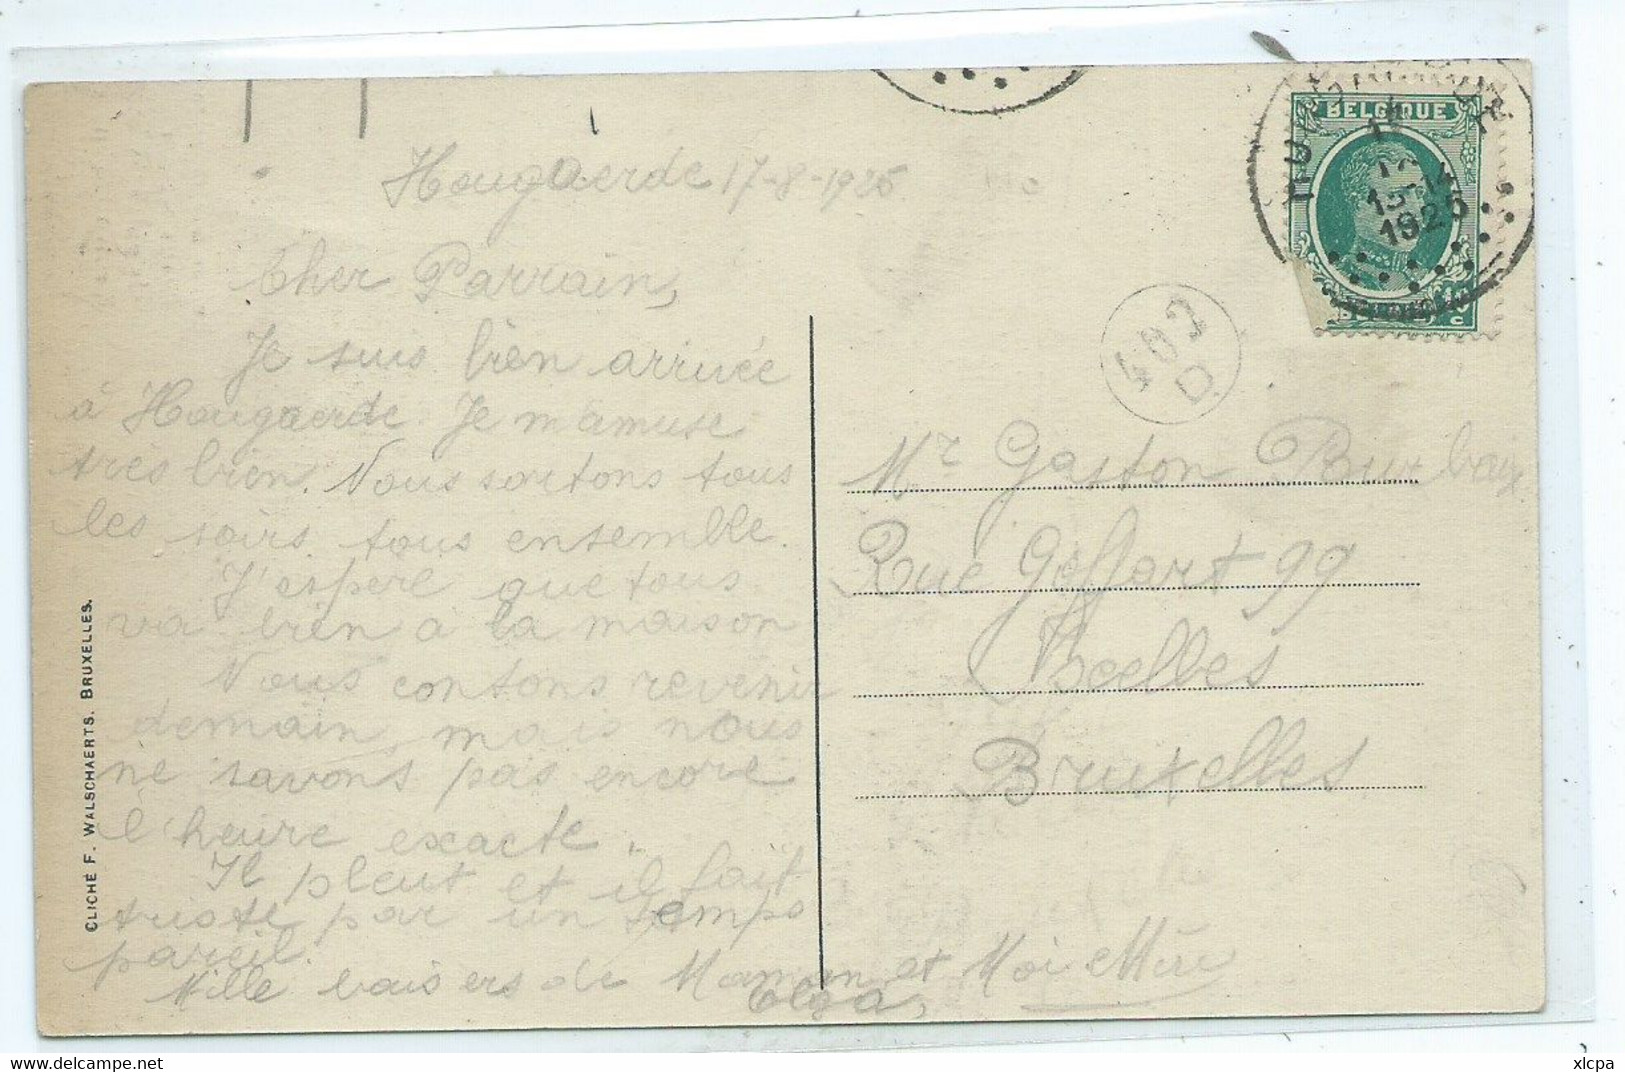 Hougaerde 17-8-1925
Cher Parrain,
Je suis bien arrivée
à Hougaerde. Je m'amuse
très bien. Nous sortons tous
les soirs tous ensemble.
J'espere que tous
va bien a la maison
Nous contons revenir
demain, mais nous
ne savons pas encore
l'heure exacte.
Il pleut et il fait
triste par un temps
pareil.
Mille baisers de Maman et Moi
Olga,
CLICHÉ F. WALSCHAERTS. BRUXELLES.
BELGIQUE
1925
402
D.
Mr Gaston
Rue Goffart 99
Ixelles
Bruxelles
delcampe.net
xlcpa